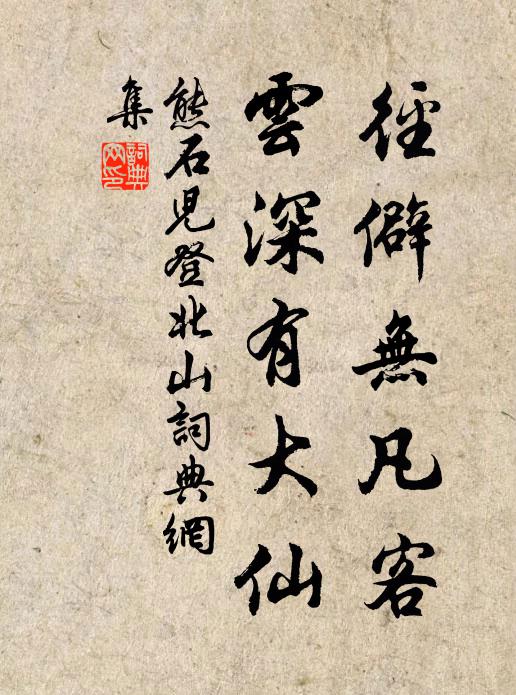 徑僻無凡客
雲深有大仙
熊石兒登北山詞典網
集
詞典
网印